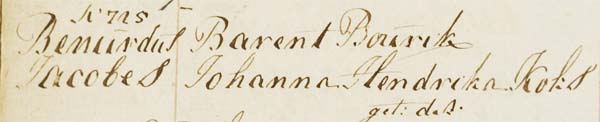 N 725
Benurdus Barent Bourik
Jacobes Johanna Hendrika Koks
get: d.s: